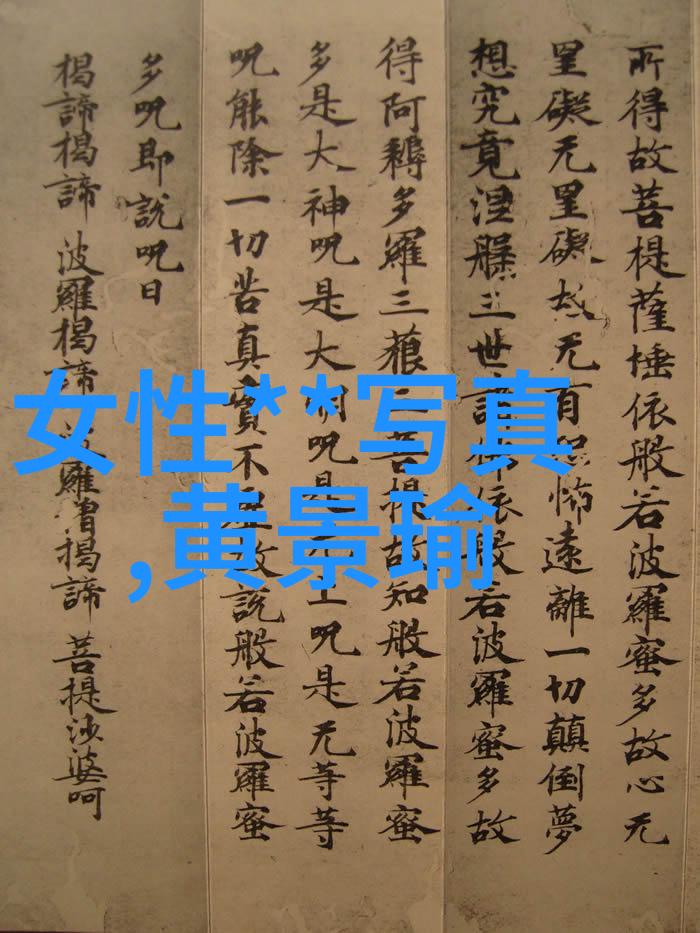 所得故菩提薩埵依般若波羅蜜多故心无
罣礙无罣礙故无有恐怖遠離一切顛倒夢
想究竟涅槃三世諸佛依般若波羅蜜多故
得阿耨多羅三藐三菩提故知般若波羅蜜
多是大神呪是大明呪是无上呪是无等等
呪能除一切苦真實不虛故說般若波羅蜜
多呪即說呪曰
揭諦揭諦 波羅揭諦 波羅僧揭諦 菩提沙婆呵
女性**写真
,黄景瑜